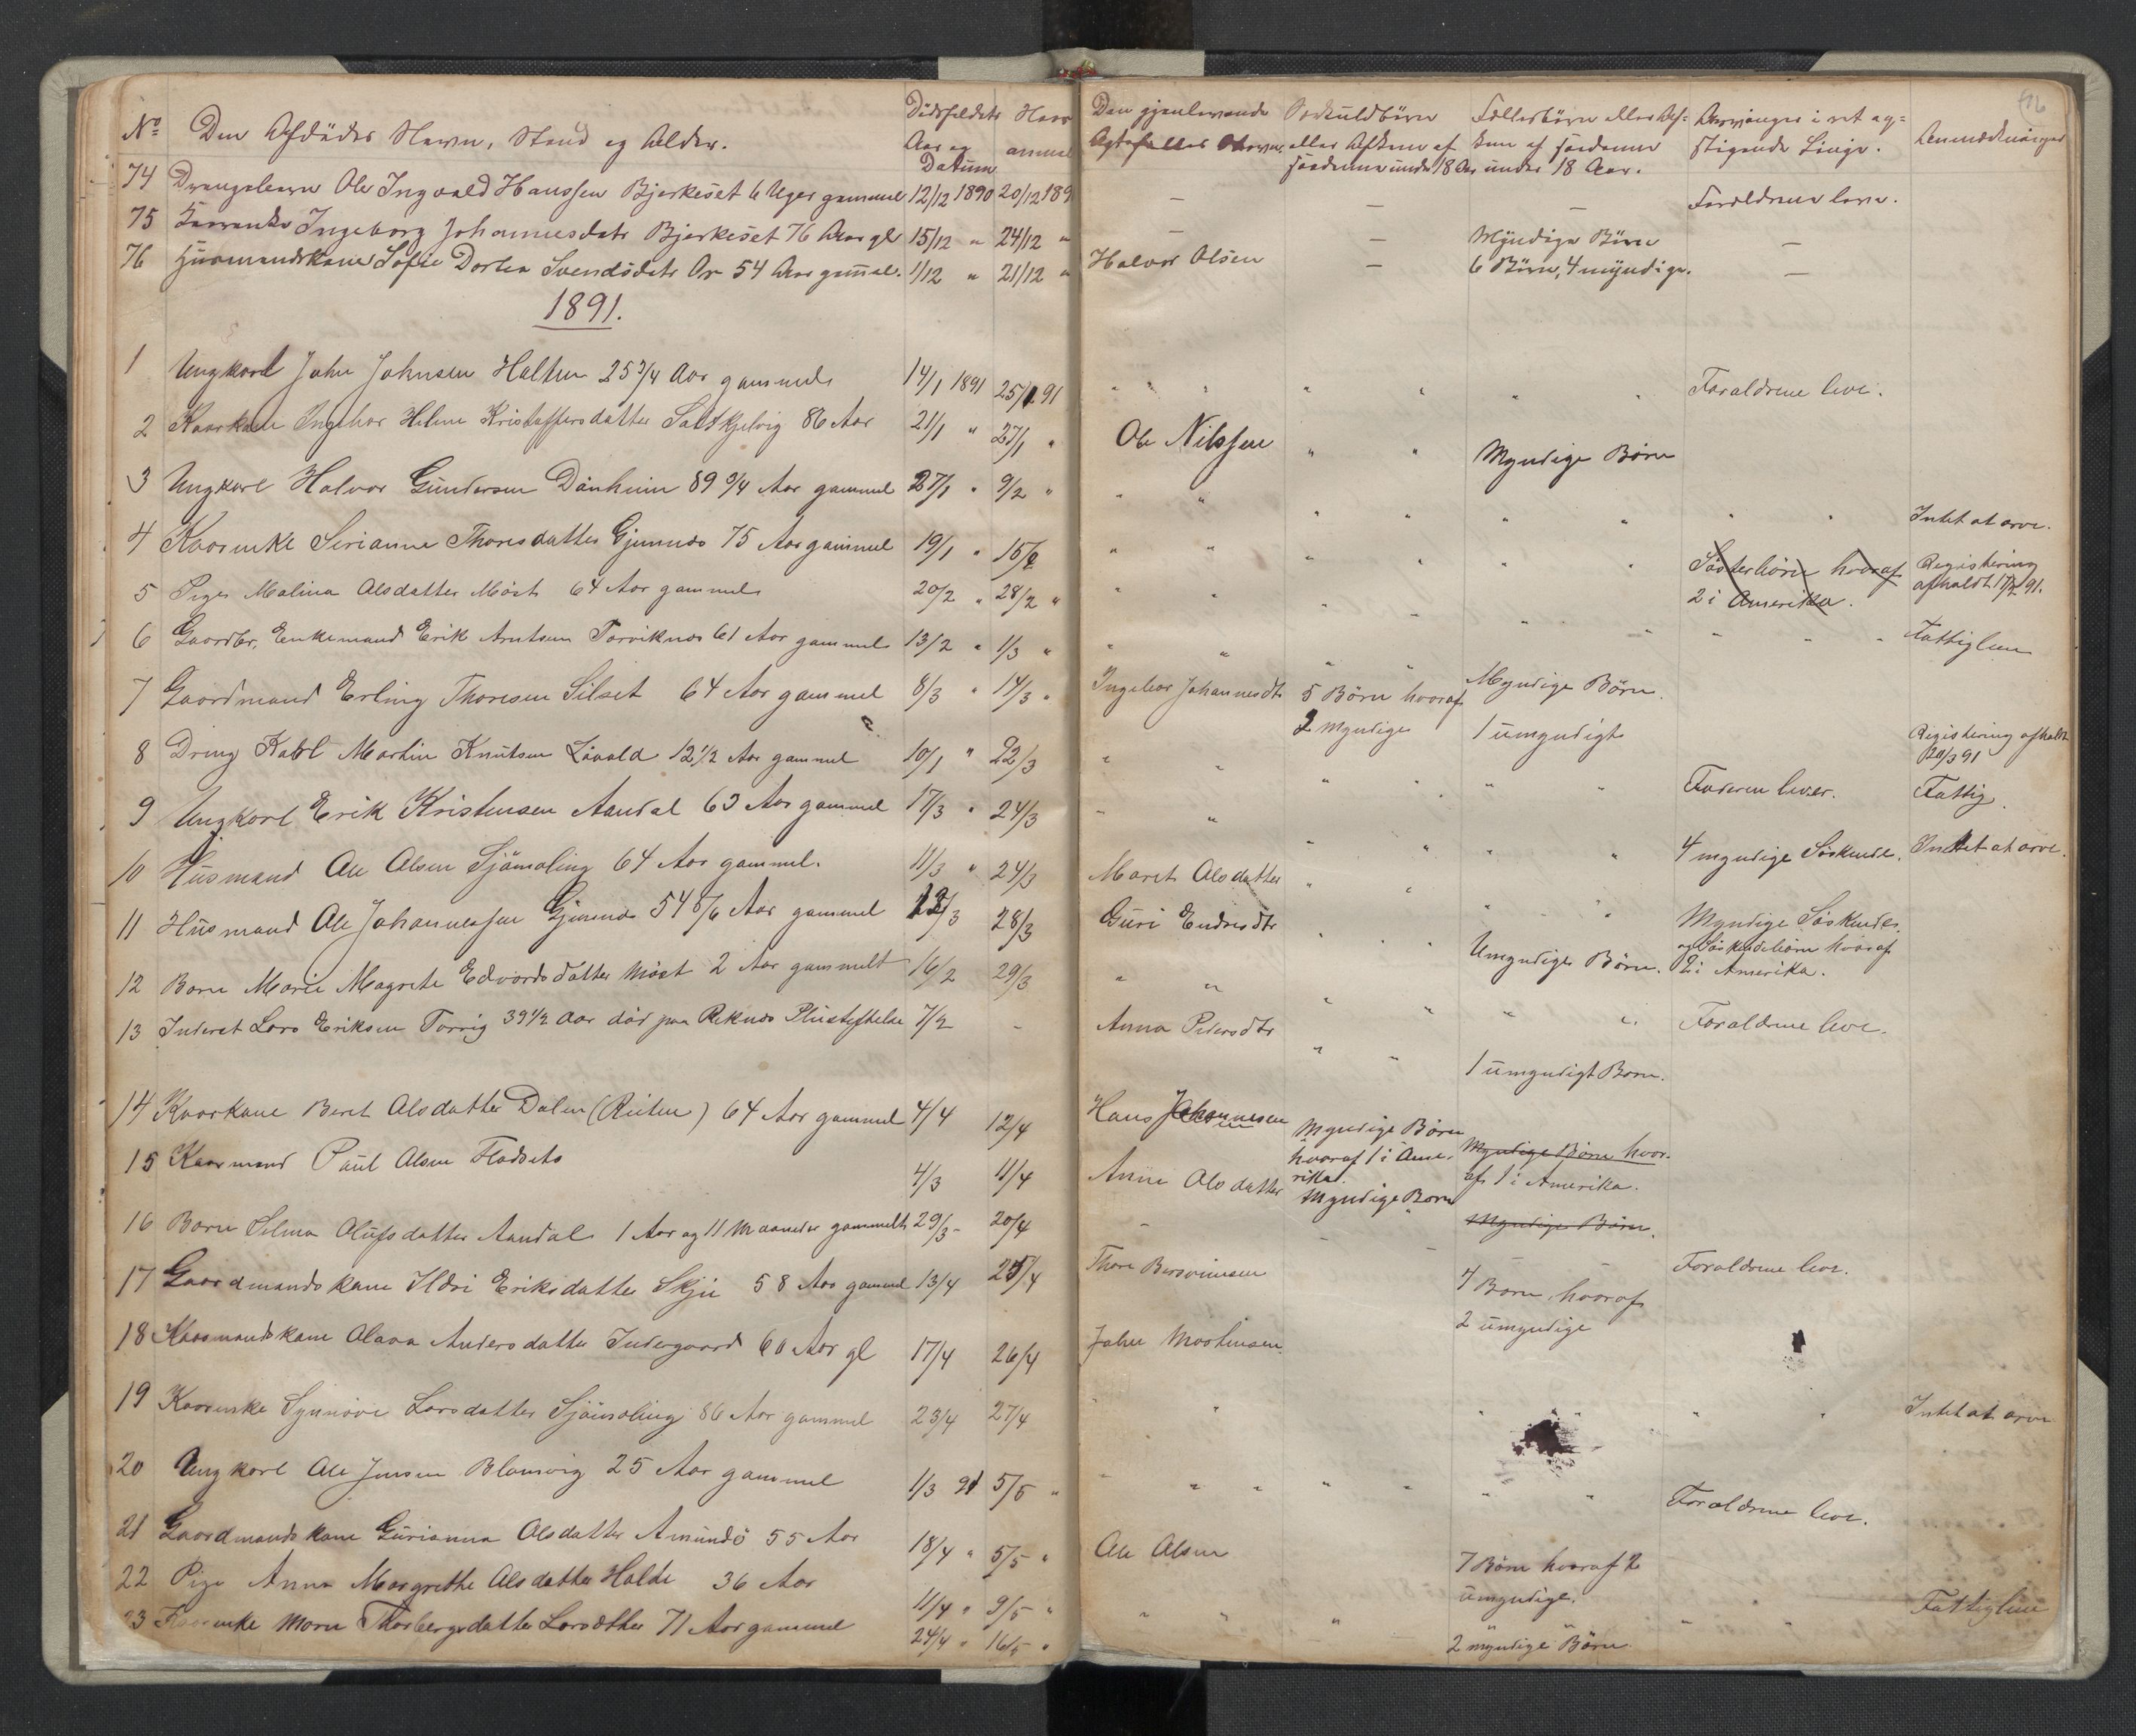 No Den Afdødes Navn, Stand og Alder. Dødsfaldets Aar og Datum Den gjenlevende Ægtefælles Navn. Særkuldbørn eller Afkom af saadanne under 18 Aar Fællesbørn eller Af= kom af saadanne under 18 Aar. Arvinger i ret op= stigende Linje. Anmærkninger
74 Drengebarn Ole Ingvald Hanssen Bjerkeset 6 Uger gammel 12/12 1890 20/12 189 — — — Forældrene leve.
75 Kaarenke Ingeborg Johannesdatr Bjerkeset 76 Aar gl 15/12 " 24/12 " — — Myndige Børn —
76 Husmandskone Sofie Dortea Svendsdatr Or 54 Aar gammel. 1/12 " 21/12 " Halvor Olsen — 6 Børn, 4 myndige. —
1891.
1 Ungkarl John Johnsen Halten 25 3/4 Aar gammel 14/1 1891 25/1 91 " " " " " " " Forældrene leve.
2 Kaarkone Ingebor Helene Kristoffersdatter 86 Aar 21/1 " 27/1 " Ole Nilssen " " Myndige Børn
3 Ungkarl Halvor Gundersen 89 3/4 Aar gammel 27/1 " 9/2 " " " " " " " " " Intet at arve.
4 Kaarenke Serianna Thoresdatter Gjemnes 75 Aar gammel 19/1 " 15/2 " " " " " " Søsterbørn hvoraf 2 i Amerika. Registrering afholdt 17/2 91.
5 Pige Malina Olsdatter Møst 64 Aar gammel 20/2 " 28/2 " " " " " " " " " " Fattiglem
6 Gaardbr, Enkemand Erik Arntsen Torviknes 61 Aar gammel 13/2 " 1/3 " " " " " Myndige Børn.
7 Gaardmand Erling Thoresen Silset 64 Aar gammel 8/3 " 14/3 " Ingebor Johannesdtr 5 Børn hvoraf 2 myndige 1 umyndigt Registrering afholdt 20/3 91
8 Dreng Karl Martin Knutsen 12 1/2 Aar gammel 10/1 " 22/3 " " " " " " Faderen lever. Fattig.
9 Ungkarl Erik Kristensen Aandal 63 Aar gammel 17/3 " 24/3 " " " " " " 4 myndige Søskende. Intet at arve.
10 Husmand Ole Olsen Sjømoling 64 Aar gammel. 11/3 " 24/3 Maret Olsdatter " " " " Myndige Søskende og Søskendebørn hvoraf 2 i Amerika.
11 Husmand Ole Johannessen Gjemnes 54 5/6 Aar gammel 13/3 28/3 Guri Endresdtr " " " Umyndige Børn.
12 Barn Marie Magrete Edvardsdatter Møst 2 Aar gammelt 16/2 29/3 " " " " " " Forældrene leve.
13 Inderst Lars Eriksen Torvig 39 1/2 Aar død paa Reknes Pleiestiftelse 7/2 - Anna Petersdtr " " 1 umyndigt Barn.
14 Kaarkone Beret Olsdatter Dalen (Reiten) 64 Aar gammel 4/4 12/4 Hans Johannesen Myndige Børn hvoraf 1 i Ame- rika. Myndige Børn hvor- af 1 i Amerika.
15 Kaarmand Paul Olsen Fladseto 4/3 11/4 Anne Olsdatter Myndige Børn Myndige Børn.
16 Barn Selma Olufsdatter Aandal 1 Aar og 11 Maaneder gammelt 29/3 - 20/4 - - - - - Forældrene leve.
17 Gaardmandskone Ildri Eriksdatter Skjei 58 Aar gammel 13/4 25/4 Thore 4 Børn hvoraf 2 umyndige
18 Kaarmandskone Olava Andersdatter Indergaard 60 Aar gl 17/4 26/4 Johan Mortensen
19 Kaarenke Synnøve Larsdatter Sjømoling 86 Aar gammel 23/4 27/4 " " " " " " Intet at arve
20 Ungkarl Ole Jensen Blomvig 25 Aar gammel 1/3 91 5/5 " " " " " " " " Forældrene leve.
21 Gaardmandskone Gurianna Olsdatter Amundø 55 Aar 18/4 " 5/5 " Ole Olsen 7 Børn hvoraf 2 umyndige.
22 Pige Anna Margrethe Olsdatter Holde 36 Aar 11/4 " 9/5 " " " " " " " " Fattiglem
23 Kaarenke Maren Thorbergsdatter Larsætter 71 Aar gammel 24/4 " 16/5 " 2 myndige Børn.